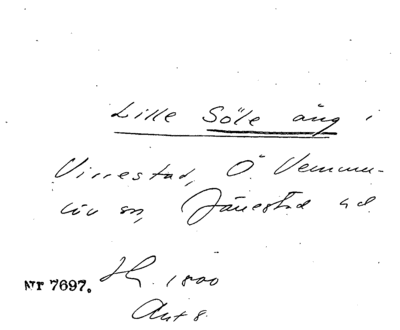 Lille Söle äng i
Virrestad, Ö Vemmen-
löv sn, Järrestad hd.
Nr 7697. Hk. 1800
Akt 8.